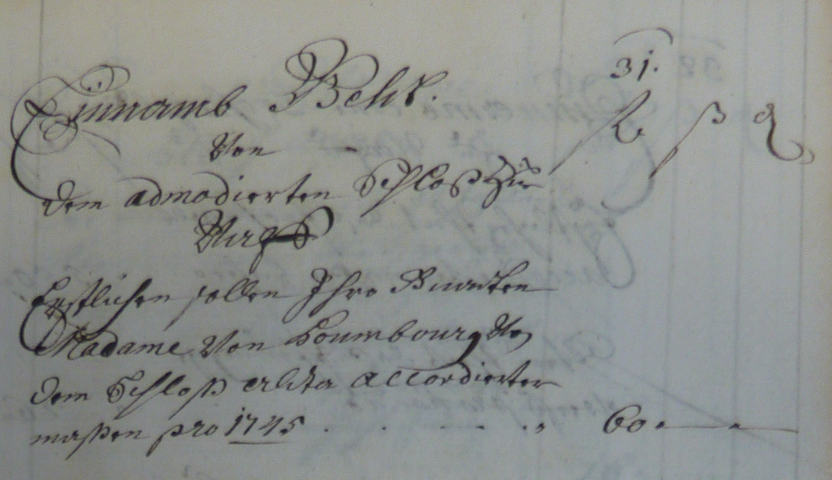 31.
Einnamb Gelt.
lb ß d
Von
dem admodierten Schloß Zue
Erstlichen sollen Ihro Gnaden
Madame Von Hombourg Von
dem Schloß alda accordierter
maßen pro 1745 . . . . . 60 " "